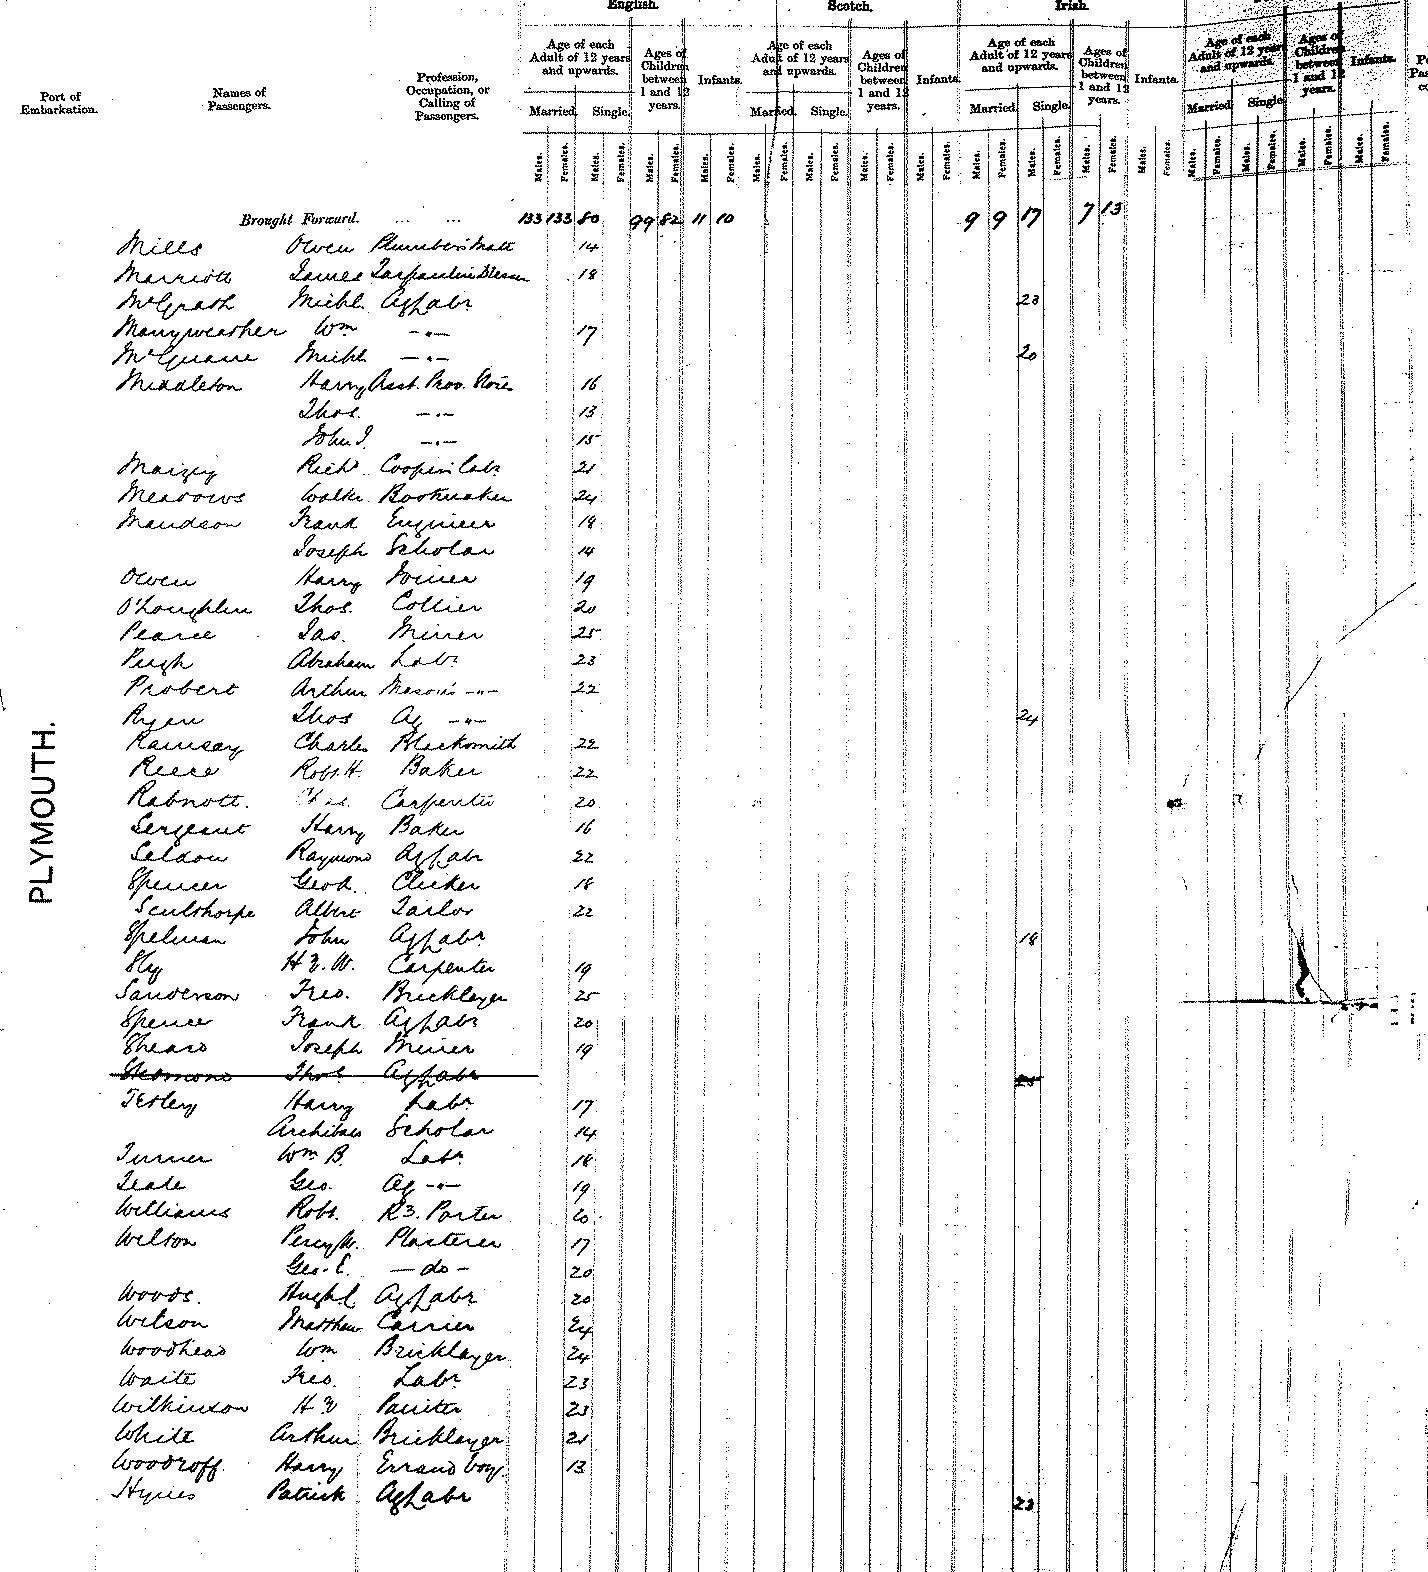 English. Scotch. Irish.
Port of Embarkation. Names of Passengers. Profession, Occupation, or Calling of Passengers. Age of each Adult of 12 years and upwards. Ages of Children between 1 and 12 years. Infants. Age of each Adult of 12 years and upwards. Ages of Children between 1 and 12 years. Infants. Age of each Adult of 12 years and upwards. Ages of Children between 1 and 12 years. Infants. Age of each Adult of 12 years and upwards. Ages of Children between 1 and 12 years. Infants.
Married. Single. Married. Single. Married. Single. Married. Single.
Males. Females. Males. Females. Males. Females. Males. Females. Males. Females. Males. Females. Males. Females. Males. Females. Males. Females. Males. Females. Males. Females. Males. Females. Males. Females. Males. Females. Males. Females. Males. Females.
Brought Forward. ... ... 133 133 80 99 82 11 10 9 9 17 7 13
Mills Owen Plumber's Mate 14
Marriott James Tarpaulin 18
McGrath Michl. Ag Labr 23
Marryweather Wm -"- 17
McGuane Michl -"- 20
Middleton Harry Asst. Prov. Store 16
Thos. -"- 13
John J. -"- 15
Richd Cooper's Labr 21
Meadows Walter 24
Maudson Frank Engineer 18
Joseph Scholar 14
Owen Harry Joiner 19
O'Loughlin Thos. Collier 20
Pearce Jas. Miner 25
Pugh Abraham Labr 23
Probert Arthur Mason's -"- 22
Ryan Thos Ag -"- 24
Ramsay Charles Blacksmith 22
Reece Robt. H. Baker 22
Rabnott. Chas. Carpenter 20
Sergeant Harry Baker 16
Seldon Raymond Ag Labr 22
Spencer Geo. Clicker 18
Sculthorpe Albert Tailor 22
Spelman John Ag Labr 18
Sly W. Carpenter 19
Sanderson Fred. Bricklayer 25
Spence Frank Ag Labr 20
Sheard Joseph Miner 19
Thos Ag Labr
Tetley Harry Labr 17
Archibald Scholar 14
Turner Wm B. Labr 18
Teale Geo. Ag -"- 19
Williams Robt. Porter 20
Wilton Percy W. Plasterer 17
Geo. E. -do- 20
Woods. Hugh Ag Labr 20
Wilson Matthew Carrier 24
Woodhead Wm Bricklayer 24
Waite Fred. Labr 23
Wilkinson H Painter 23
White Arthur Bricklayer 21
Woodroff Harry Errand boy. 13
Hynes Patrick Ag Labr 23
PLYMOUTH.